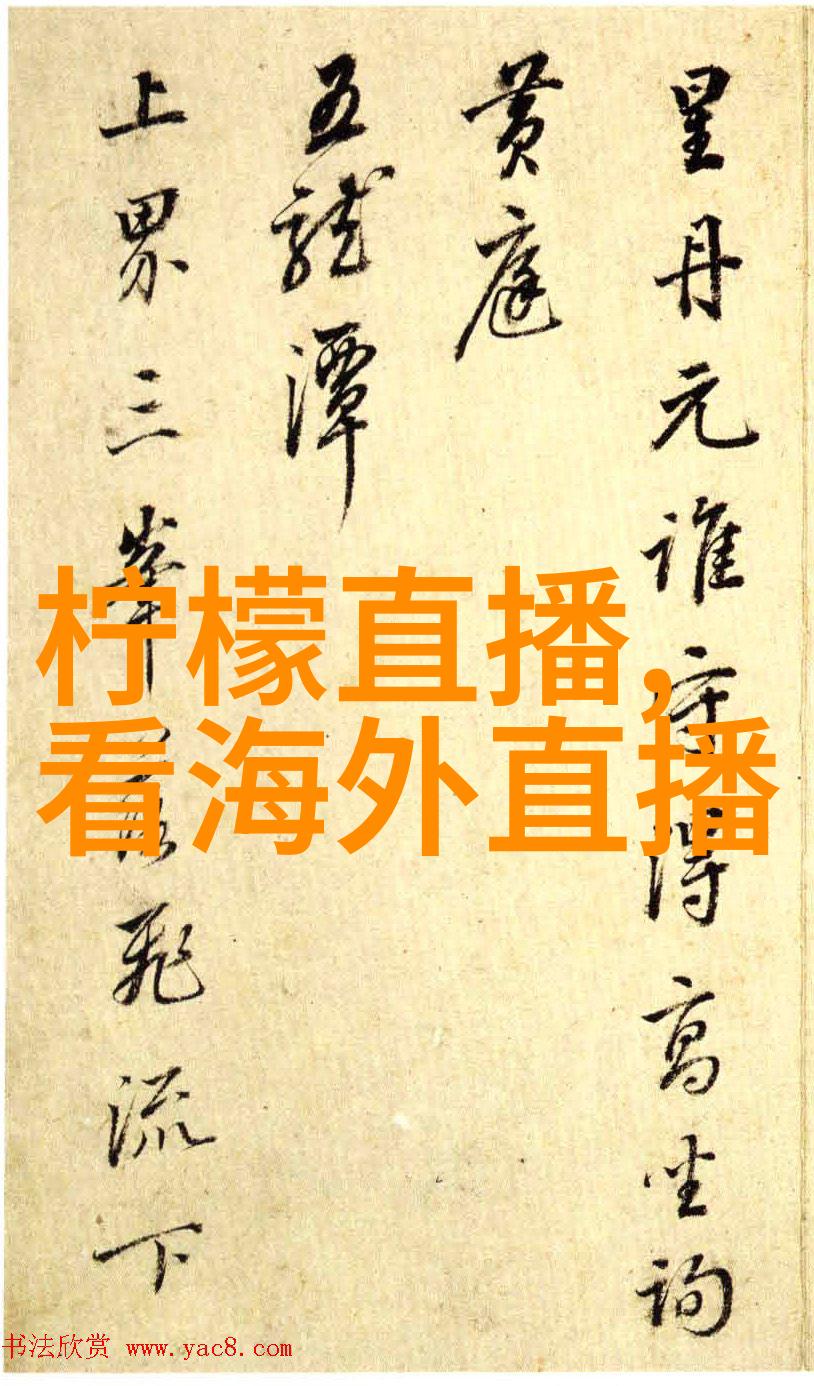 星丹元誰守得高坐詢
黄庭
五龍潭
上界三峯飛流下
柠檬直播,
看海外直播
书法欣赏 www.yac8.com